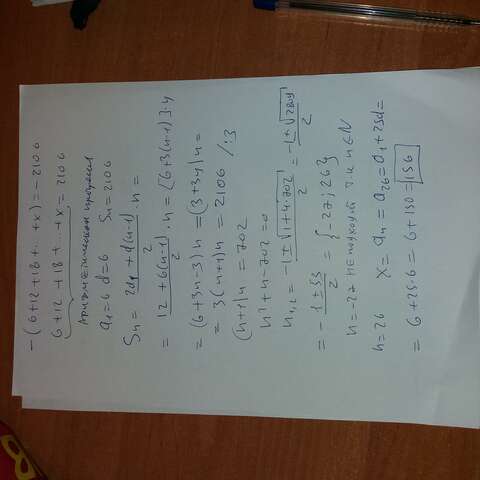 -(6+12+18+...+x)=-2106
6+12+18+...+x=2106
Арифметическая прогрессия
a₁=6 d=6 Sₙ=2106
Sₙ = (2a₁+d(n-1))/2 · n =
= (12+6(n-1))/2 · n = [6+3(n-1)]·n
= (6+3n-3)n = (3+3n)n =
= 3(n+1)n = 2106 /:3
(n+1)n = 702
n²+n-702=0
n₁,₂ = (-1±√(1+4·702))/2 = (-1±√2809)/2
= (-1±53)/2 = {-27; 26}
n=-27 не подходит т.к n∈N
n=26 x=aₙ=a₂₆=a₁+25d=
= 6+25·6 = 6+150 = 156